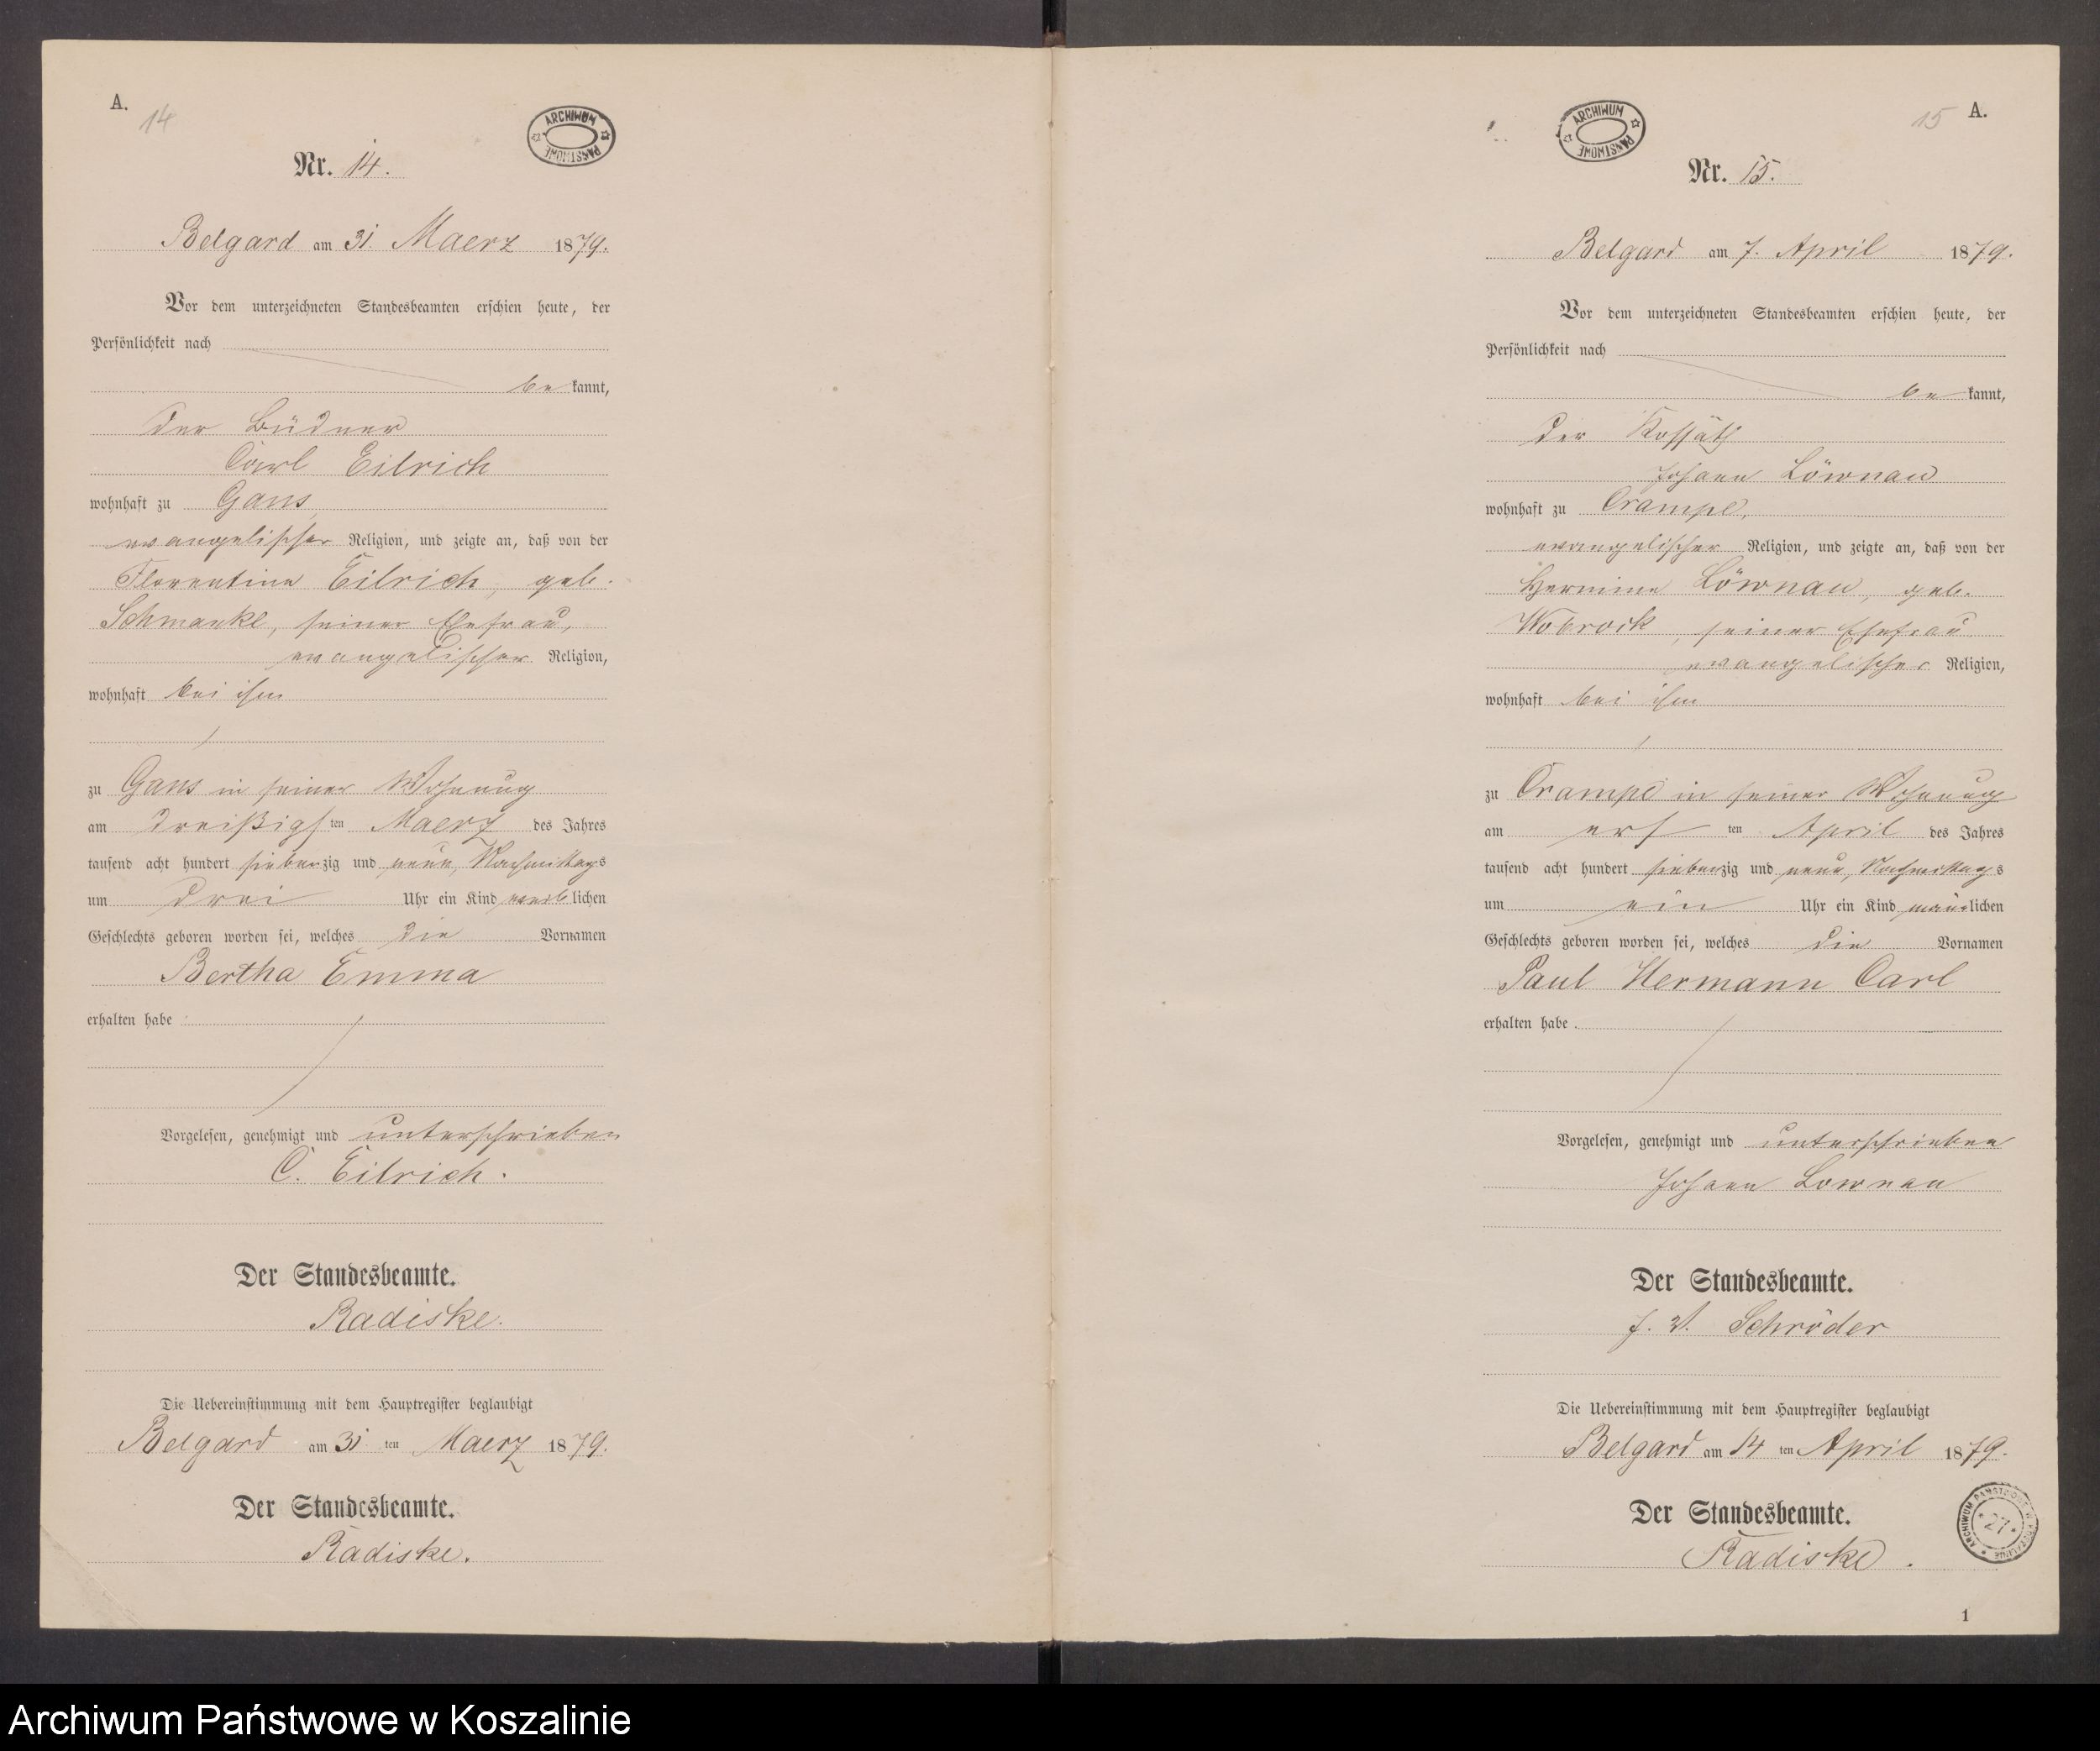 A.
14
ARCHIWUM PAŃSTWOWE
Nr. 14.
Belgard am 31 Maerz 1879.
Vor dem unterzeichneten Standesbeamten erschien heute, der
Persönlichkeit nach
be kannt,
der Büdner
Carl Eilrich
wohnhaft zu Gans,
evangelischer Religion, und zeigte an, daß von der
Florentine Eilrich, geb.
Schmanke, seiner Ehefrau,
evangelischer Religion,
wohnhaft bei ihm
zu Gans in seiner Wohnung
am dreißigsten Maerz des Jahres
tausend acht hundert siebenzig und neun, Nachmittags
um drei Uhr ein Kind weiblichen
Geschlechts geboren worden sei, welches die Vornamen
Bertha Emma
erhalten habe
Vorgelesen, genehmigt und unterschrieben
C. Eilrich.
Der Standesbeamte.
Radiske.
Die Uebereinstimmung mit dem Hauptregister beglaubigt
Belgard am 31 ten Maerz 1879.
Der Standesbeamte.
Radiske.
15 A.
ARCHIWUM PAŃSTWOWE
Nr. 15.
Belgard am 7. April 1879.
Vor dem unterzeichneten Standesbeamten erschien heute, der
Persönlichkeit nach
be kannt,
der Kossäth
Johann Löwnau
wohnhaft zu Crampe,
evangelischer Religion, und zeigte an, daß von der
Hermine Löwnau, geb.
Wobrock, seiner Ehefrau
evangelischer Religion,
wohnhaft bei ihm
zu Crampe in seiner Wohnung
am ersten April des Jahres
tausend acht hundert siebenzig und neun, Nachmittags
um ein Uhr ein Kind männlichen
Geschlechts geboren worden sei, welches die Vornamen
Paul Hermann Carl
erhalten habe
Vorgelesen, genehmigt und unterschrieben
Johann Lownau
Der Standesbeamte.
J. V. Schröder
Die Uebereinstimmung mit dem Hauptregister beglaubigt
Belgard am 14 ten April 1879.
Der Standesbeamte.
Radiske.
ARCHIWUM PAŃSTWOWE W KOSZALINIE
27
1
Archiwum Państwowe w Koszalinie